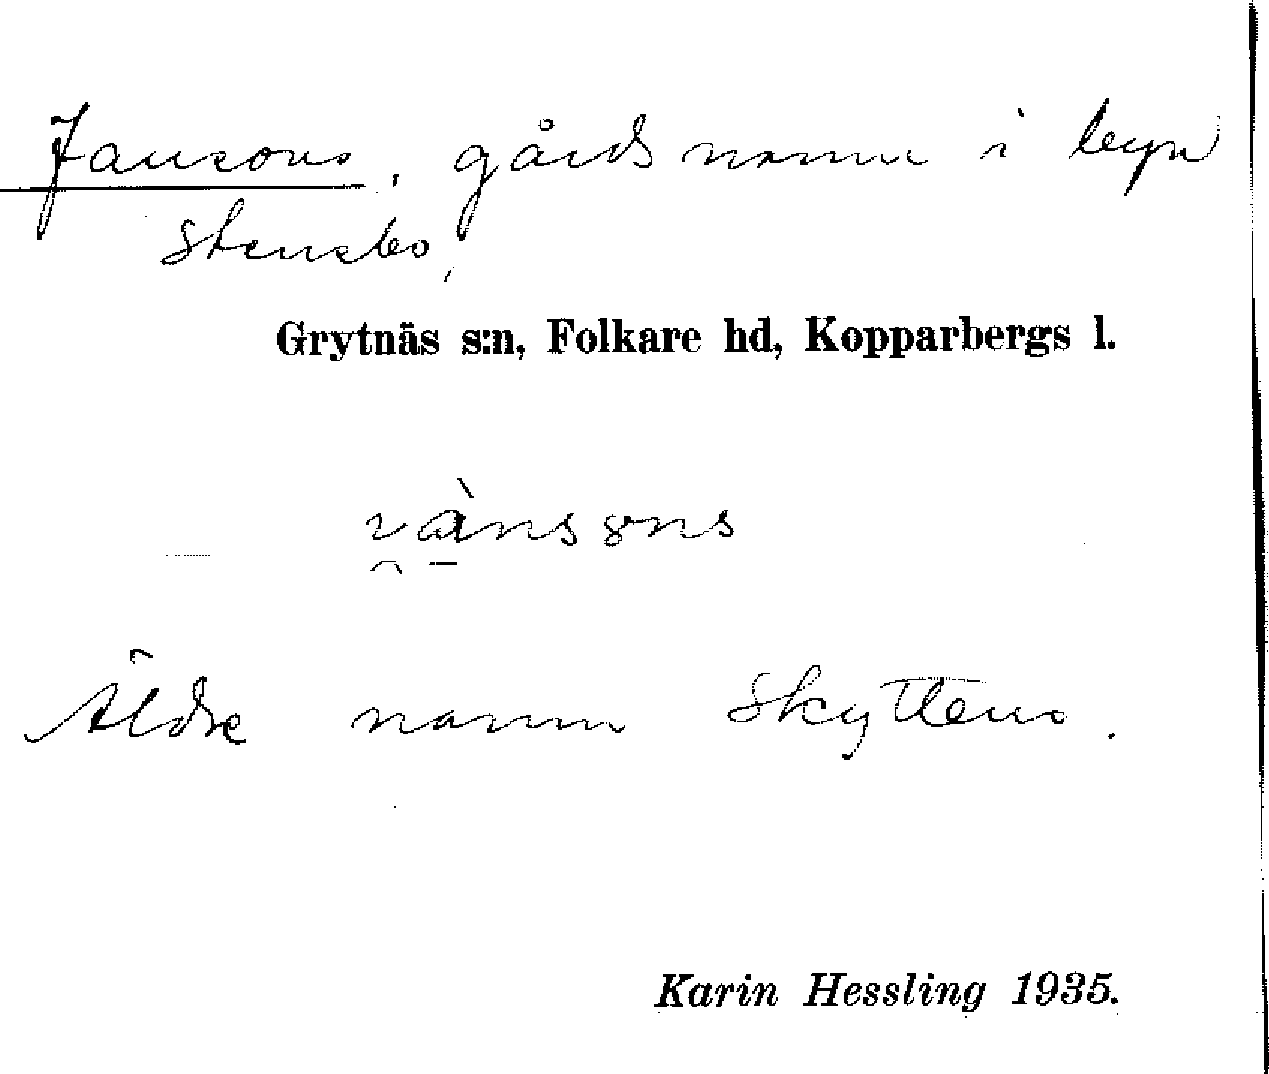 Jansons, gårdsnamn i byn
Stensbo,
Grytnäs s:n, Folkare hd, Kopparbergs l.
Äldre namn Skyttens.
Karin Hessling 1935.